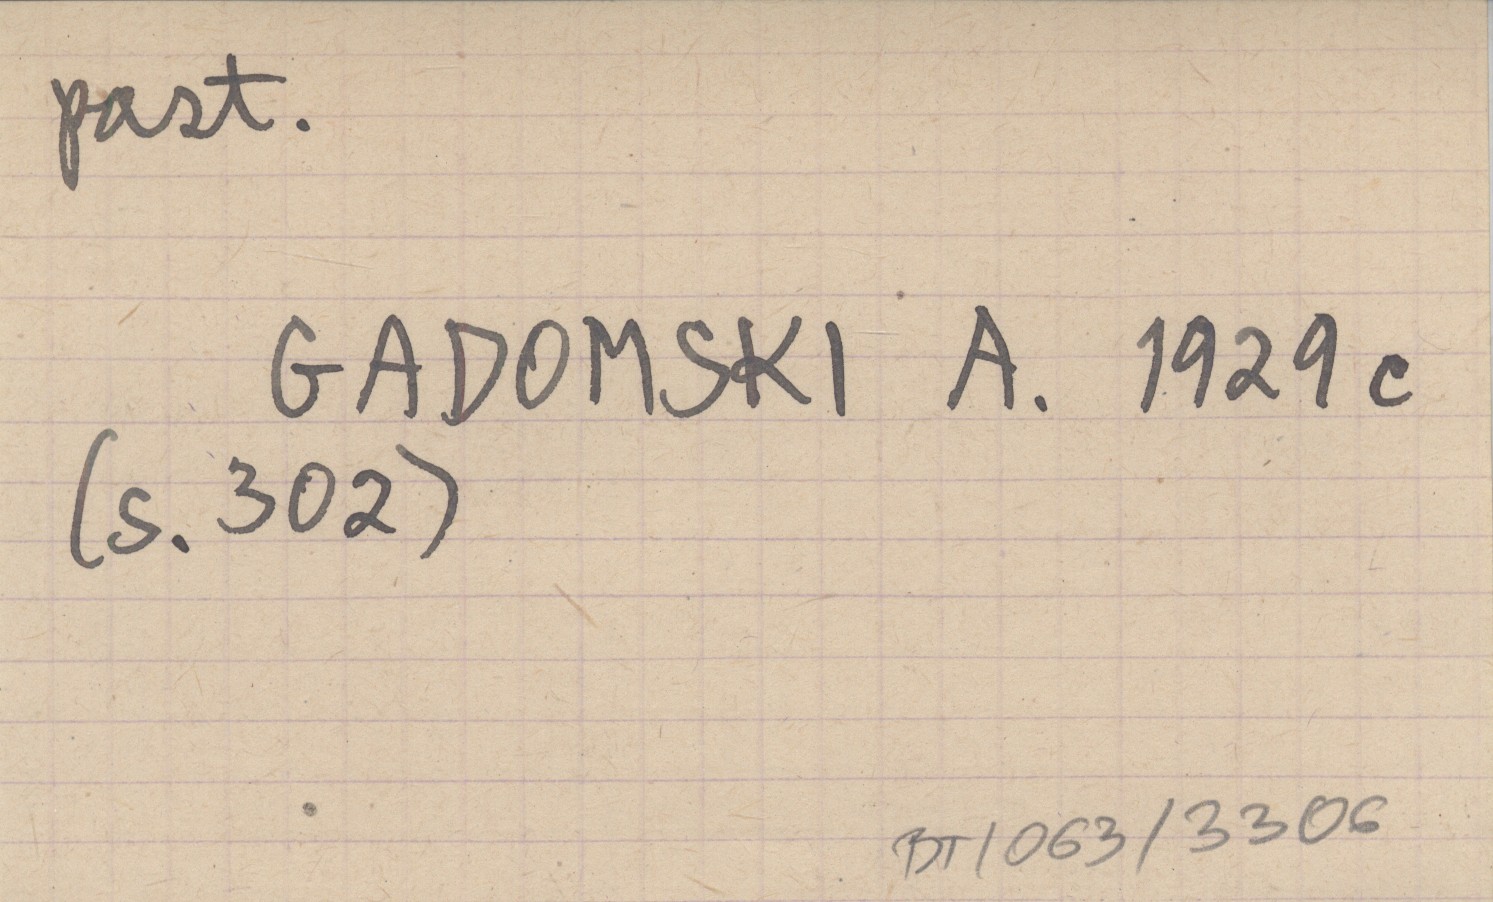 past.
GADOMSKI A. 1929 c
(s. 302)
BT/063/3306